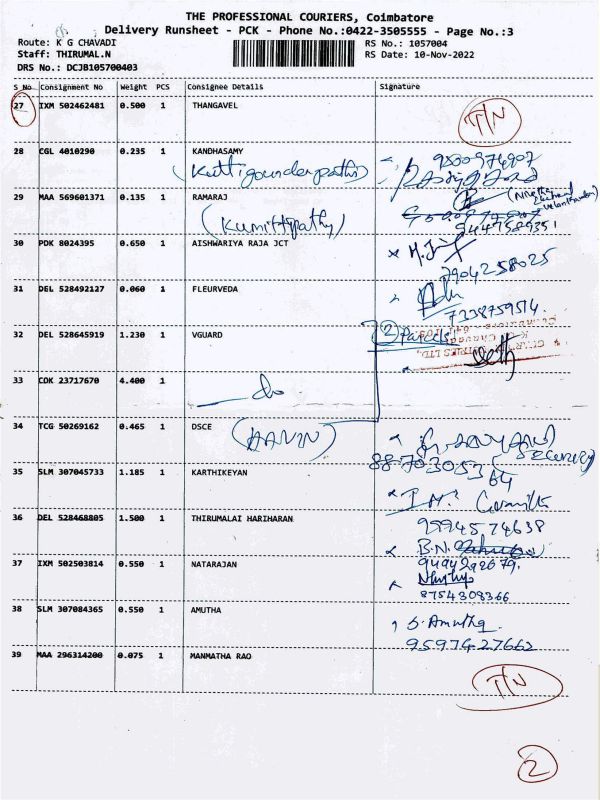 THE PROFESSIONAL COURIERS, Coimbatore
Delivery Runsheet - PCK - Phone No.:0422-3505555 - Page No.:3
Route: K G CHAVADI
RS No.: 1057004
Staff: THIRUMAL.N
RS Date: 10-Nov-2022
DRS No.: DCJB105700403
S No Consignment No Weight PCS Consignee Details Signature
27 IXM 502462481 0.500 1 THANGAVEL
T/N
28 CGL 4010290 0.235 1 KANDHASAMY
29 MAA 569601371 0.135 1 RAMARAJ
(Kumittipathy)
30 PDK 8024395 0.650 1 AISHWARIYA RAJA JCT
7904258025
31 DEL 528492127 0.060 1 FLEURVEDA
7338759514.
32 DEL 528645919 1.230 1 VGUARD
2 Parcels
33 COK 23717670 4.400 1
do
34 TCG 50269162 0.465 1 DSCE
35 SLM 307045733 1.185 1 KARTHIKEYAN
36 DEL 528468805 1.500 1 THIRUMALAI HARIHARAN
9994574638
B.N.
37 IXM 502503814 0.550 1 NATARAJAN
8754308366
38 SLM 307084365 0.550 1 AMUTHA
S. Amutha
9597427662
39 MAA 296314200 0.075 1 MANMATHA RAO
T/N
2